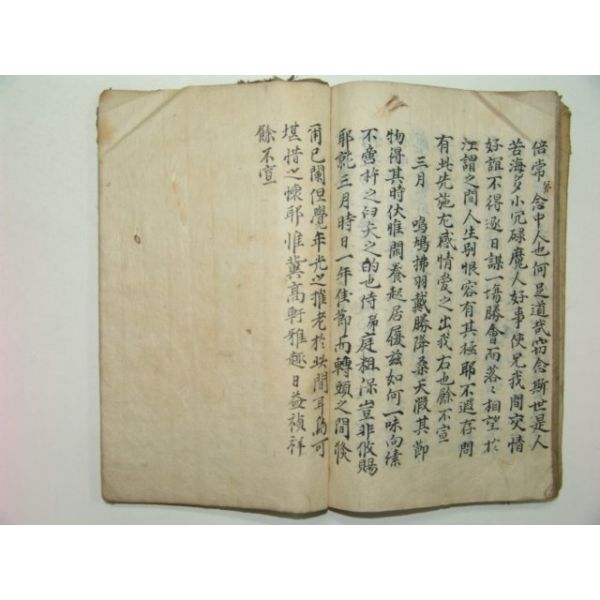 倍常 念中人也何足道哉窃念斯世是人
苦海多小冗碌魔人好事使兄我間交情
好誼不得逐日謀一場勝會而落〻相望於
江謂之間人生別恨容有其極耶不遐存問
有此先施尤感情愛之出我右也餘不宣
三月 鳴鳩拂羽戴勝降桑天假其節
物得其時伏惟閤養起居履玆如何一味向傃
不啻析之臼矢之的也侍 庭祖深豈非攸賜
耶就三月時日一年佳節而轉頭之間倏
爾已闌但覺年光之摧老於此間耳烏可
堪惜之懷耶惟冀高軒雅趣日益禎祥
餘不宣